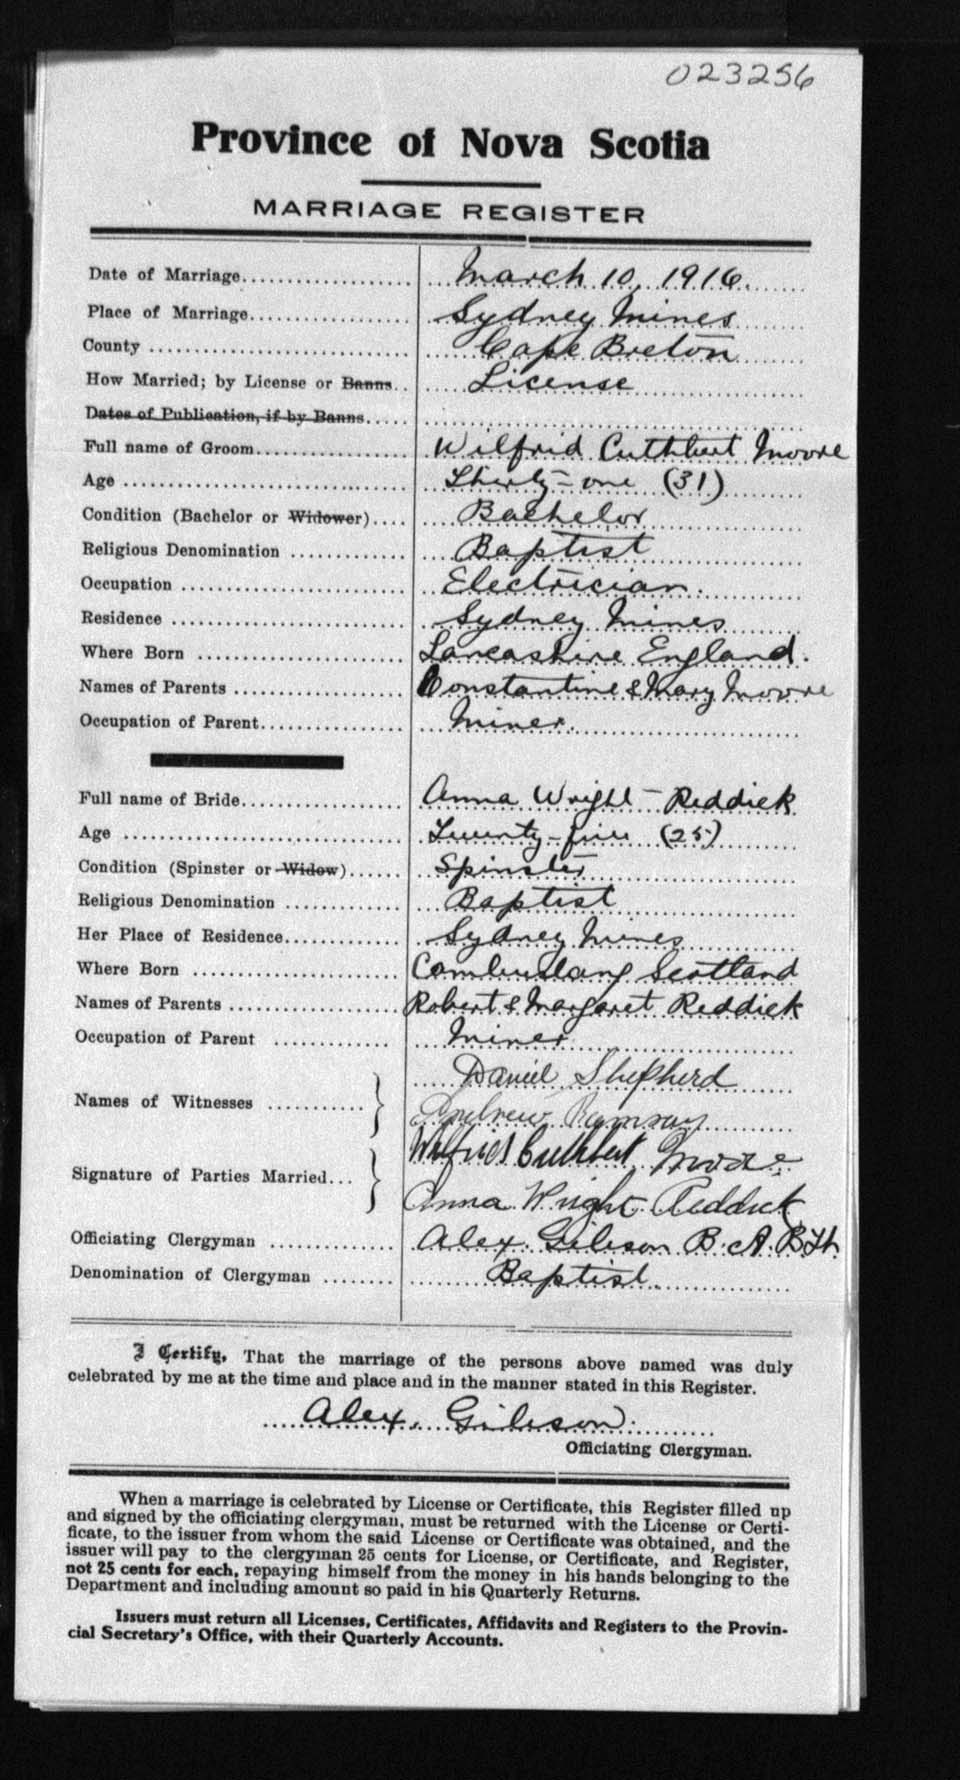 023256
Province of Nova Scotia
MARRIAGE REGISTER
Date of Marriage March 10, 1916.
Place of Marriage Sydney Mines
County Cape Breton
How Married; by License or Banns License
Dates of Publication, if by Banns
Full name of Groom Wilfrid Cuthbert Moore
Age Thirty-one (31)
Condition (Bachelor or Widower) Bachelor
Religious Denomination Baptist
Occupation Electrician.
Residence Sydney Mines
Where Born Lancashire England.
Names of Parents Constantine & Mary Moore
Occupation of Parent Miner.
Full name of Bride Anna Wright Reddick
Age Twenty-five (25)
Condition (Spinster or Widow) Spinster
Religious Denomination Baptist
Her Place of Residence Sydney Mines
Where Born Cambuslang Scotland
Names of Parents Robert & Margaret Reddick
Occupation of Parent Miner
Daniel Shepherd
Names of Witnesses
Andrew Ramsay
Wilfrid Cuthbert Moore
Signature of Parties Married
Anna Wright Reddick
Officiating Clergyman Alex. Gibson B.A. B.Th.
Denomination of Clergyman Baptist.
I Certify, That the marriage of the persons above named was duly
celebrated by me at the time and place and in the manner stated in this Register.
Alex. Gibson.
Officiating Clergyman.
When a marriage is celebrated by License or Certificate, this Register filled up
and signed by the officiating clergyman, must be returned with the License or Certi-
ficate, to the issuer from whom the said License or Certificate was obtained, and the
issuer will pay to the clergyman 25 cents for License, or Certificate, and Register,
not 25 cents for each, repaying himself from the money in his hands belonging to the
Department and including amount so paid in his Quarterly Returns.
Issuers must return all Licenses, Certificates, Affidavits and Registers to the Provin-
cial Secretary's Office, with their Quarterly Accounts.